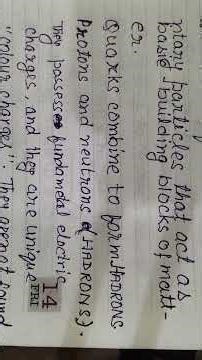 ntary particles that act as
basic building blocks of matt-
er.
Quarks combine to form HADRONS
Protons and neutrons (HADRONS).
They possess fundametal electric
charges and they are unique
"colour charges". They are not found
14
FRI